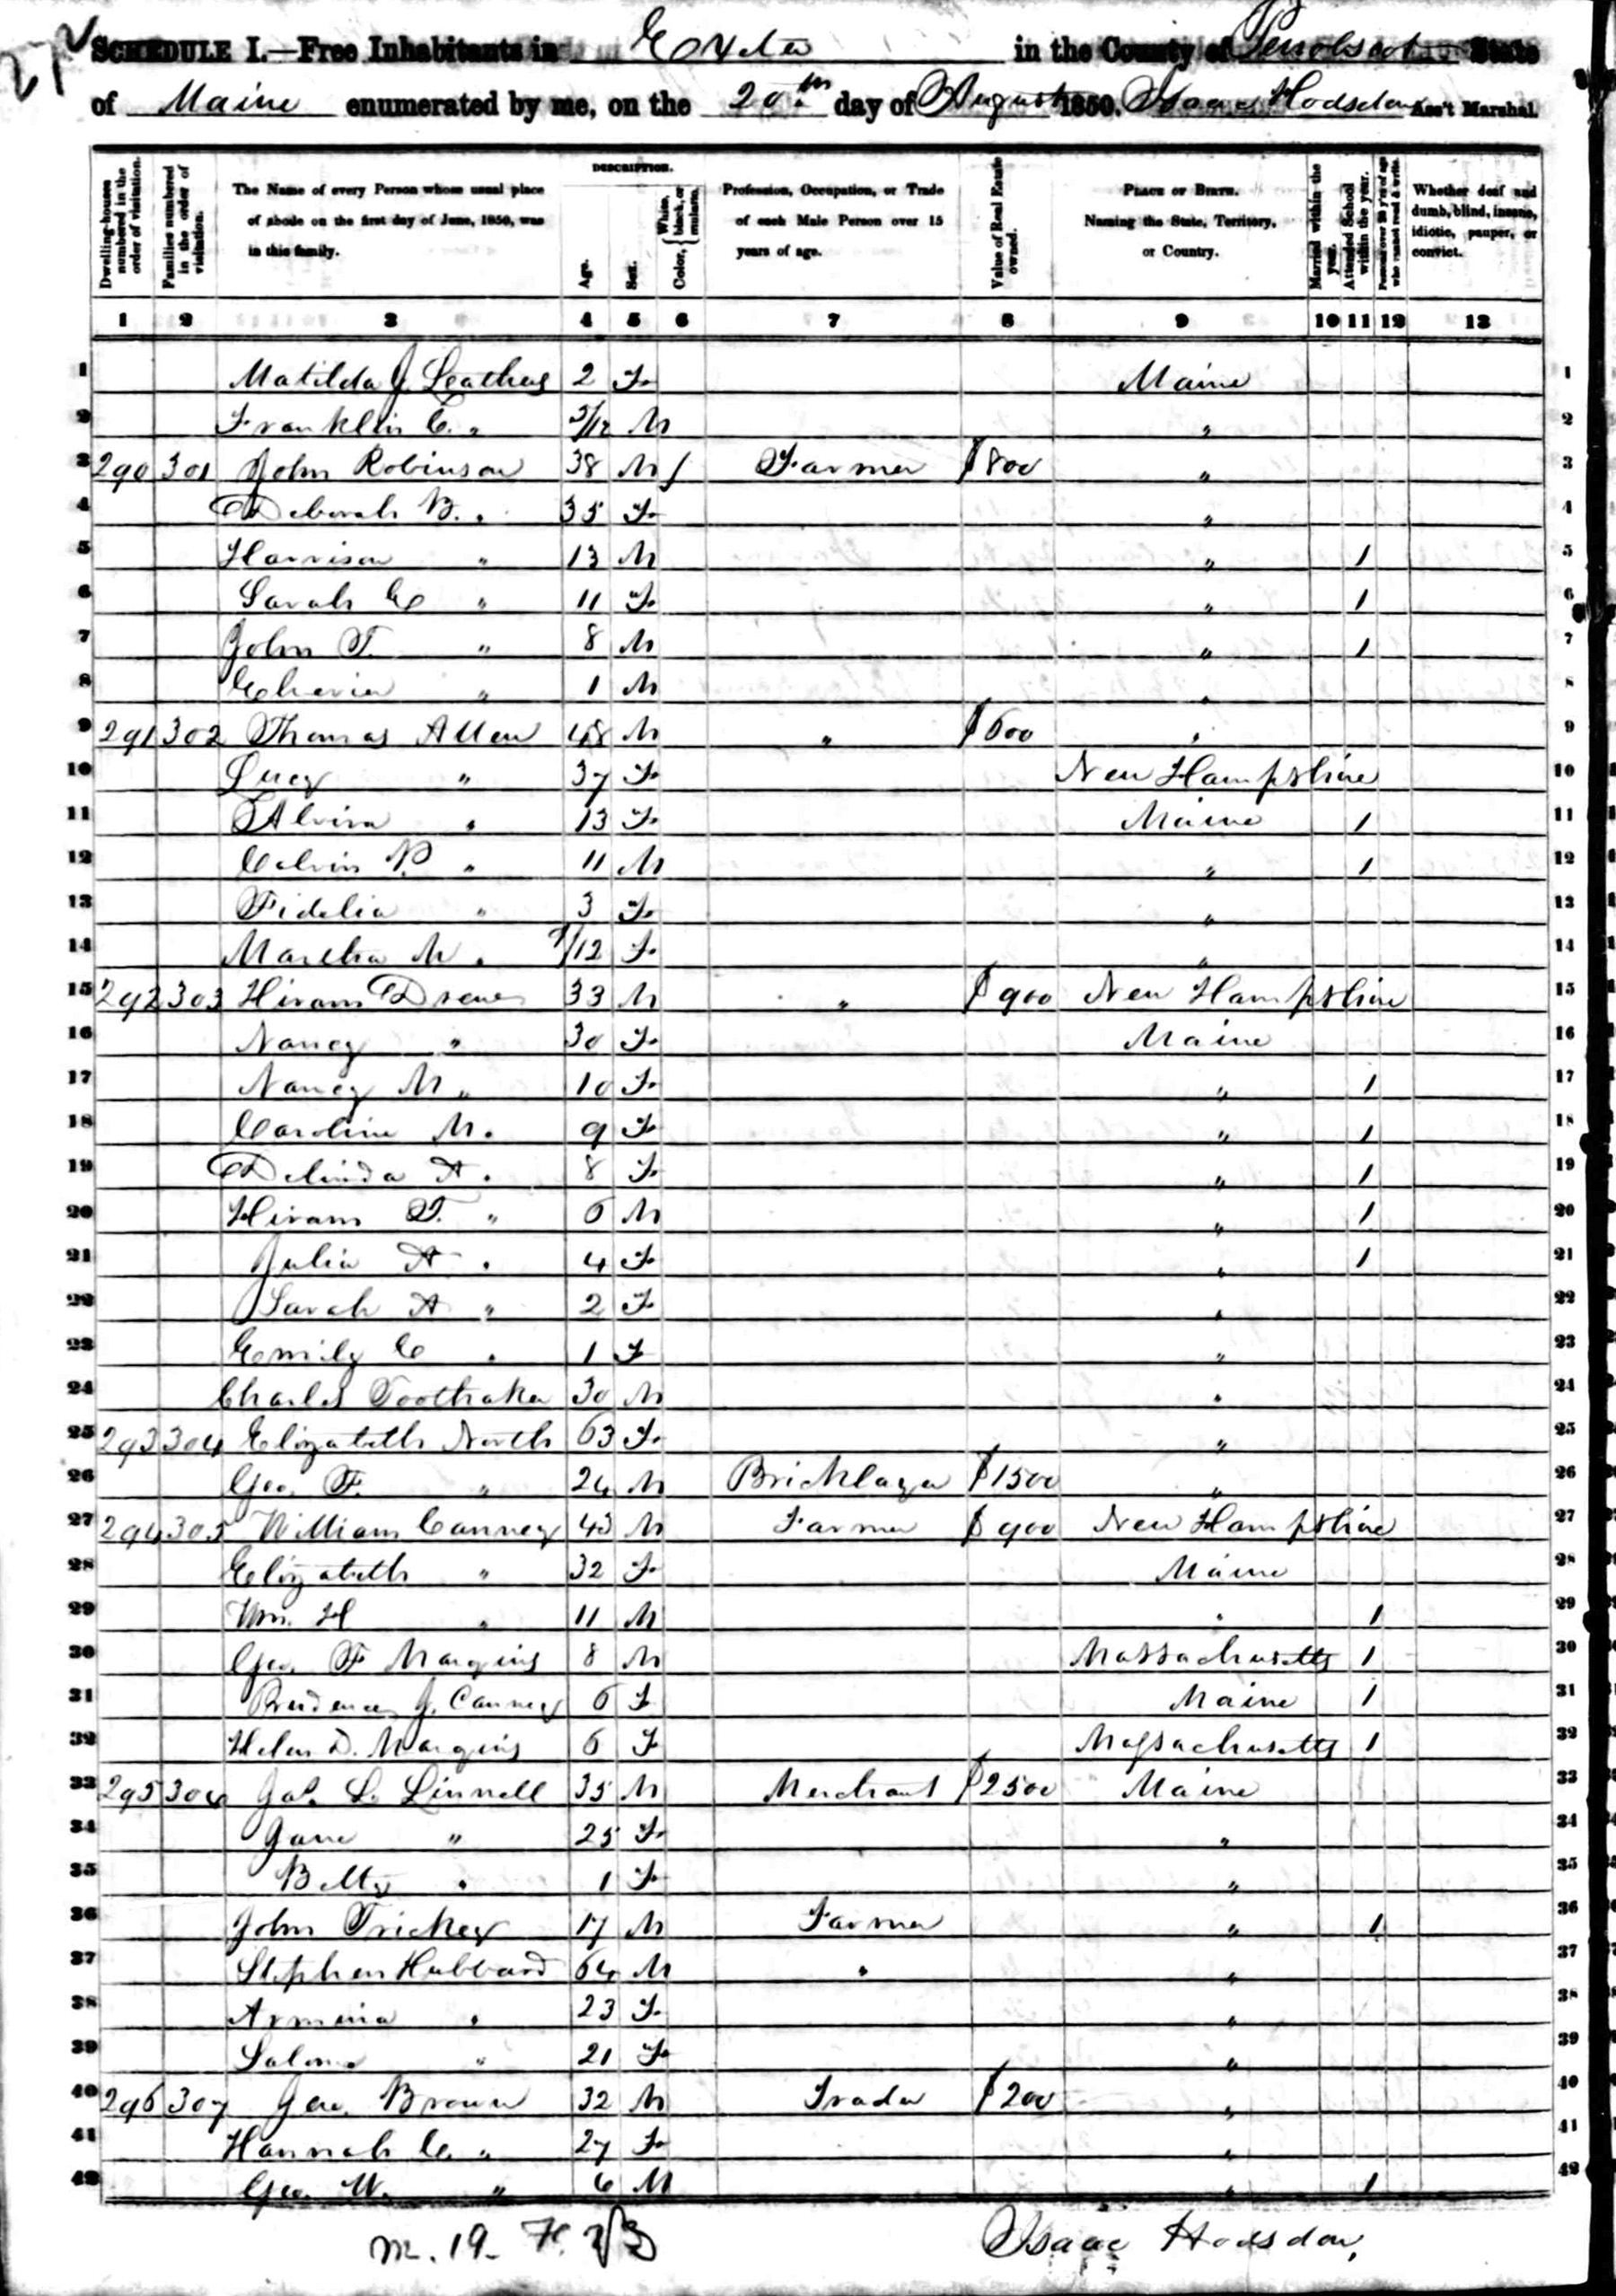 SCHEDULE I.—Free Inhabitants in Exeter in the County of Penobscot State
of Maine enumerated by me, on the 20th day of August 1850. Isaac Hodsdon Ass't Marshal.
Dwelling-houses numbered in the order of visitation.
Families numbered in the order of visitation.
The Name of every Person whose usual place of abode on the first day of June, 1850, was in this family.
DESCRIPTION.
Age.
Sex.
Color, { White, black, or mulatto.
Profession, Occupation, or Trade of each Male Person over 15 years of age.
Value of Real Estate owned.
PLACE OF BIRTH. Naming the State, Territory, or Country.
Married within the year.
Attended School within the year.
Persons over 20 y'rs of age who cannot read & write.
Whether deaf and dumb, blind, insane, idiotic, pauper, or convict.
1 2 3 4 5 6 7 8 9 10 11 12 13
1 Matilda J. Leathers 2 F Maine 1
2 Franklin C. " /12 M " 2
3 290 301 John Robinson 38 M Farmer $800 " 3
4 Deborah B. " 35 F " 4
5 Harrison " 13 M " 1 5
6 Sarah E " 11 F " 1 6
7 John T. " 8 M " 1 7
8 " 1 M " 8
9 291 302 Thomas Allen 48 M " $600 " 9
10 Lucy " 37 F New Hampshire 10
11 Alvira " 13 F Maine 1 11
12 Calvin P. " 11 M " 1 12
13 Fidelia " 3 F " 13
14 Martha M. " /12 F " 14
15 292 303 Hiram Drew 33 M " $900 New Hampshire 15
16 Nancy " 30 F Maine 16
17 Nancy M " 10 F " 1 17
18 Caroline M. " 9 F " 1 18
19 Delinda A. " 8 F " 1 19
20 Hiram T. " 6 M " 1 20
21 Julia A " 4 F " 1 21
22 Sarah A " 2 F " 22
23 Emily C " 1 F " 23
24 Charles Toothaker 30 M " 24
25 293 304 Elizabeth North 63 F " 25
26 Geo. F. " 24 M Bricklayer $1500 " 26
27 294 305 William Canney 43 M Farmer $900 New Hampshire 27
28 Elizabeth " 32 F Maine 28
29 Wm. H " 11 M " 1 29
30 Geo. F Margins 8 M Massachusetts 1 30
31 Prudence J. Canney 6 F Maine 1 31
32 Helen D. Margins 6 F Massachusetts 1 32
33 295 306 Jas. L. Linnell 35 M Merchant $2500 Maine 33
34 Jane " 25 F " 34
35 Betty " 1 F " 35
36 John Trickey 17 M Farmer " 1 36
37 Stephen Hubbard 64 M " " 37
38 Armina " 23 F " 38
39 Salome " 21 F " 39
40 296 307 Geo. Brown 32 M Trader $200 " 40
41 Hannah C. " 27 F " 41
42 Geo. W. " 6 M " 1 42
m. 19. F. 23
Isaac Hodsdon,